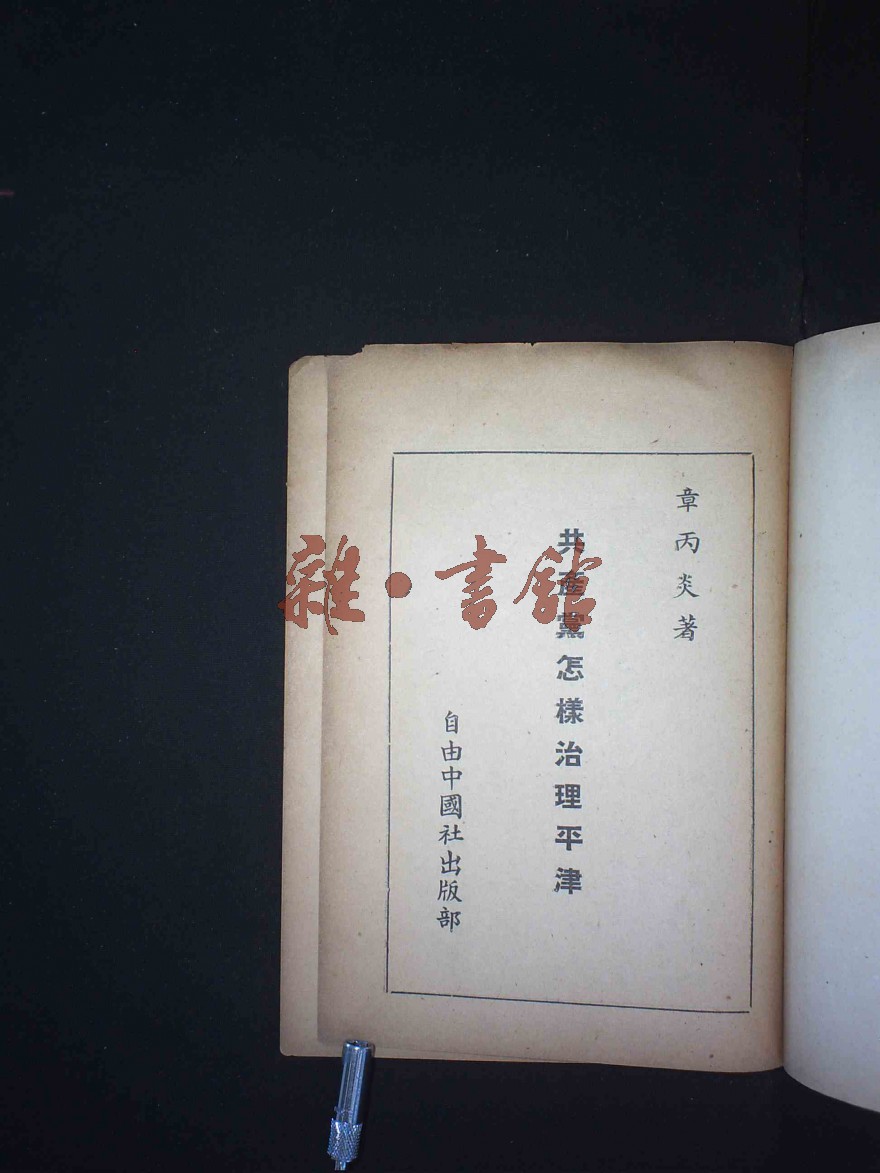 章丙炎著
共產黨怎樣治理平津
自由中國社出版部
雜·書館